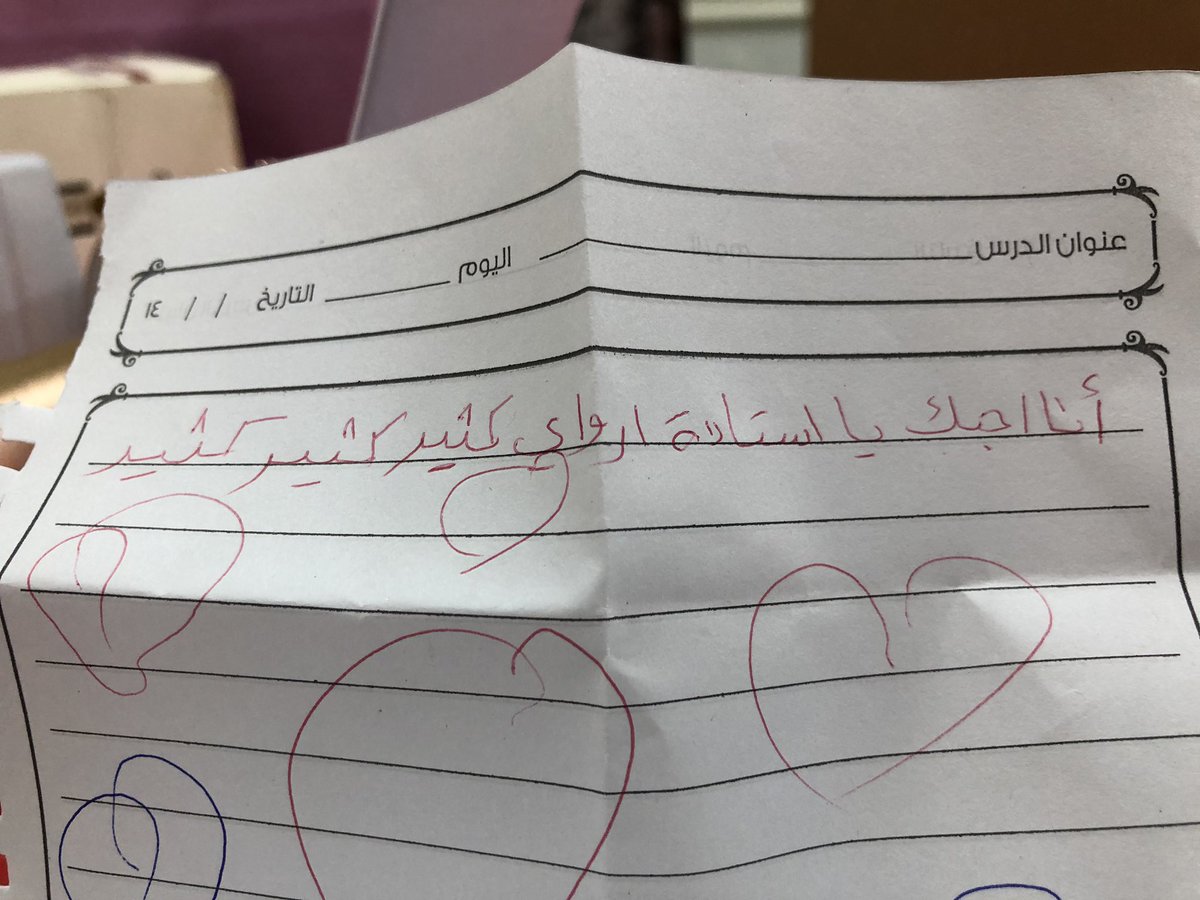 عنوان الدرس ــــــــــــ اليوم ــــــــــــ التاريخ / / ١٤
أنا احبك يا استاذة ارواي كثير كثير كثير